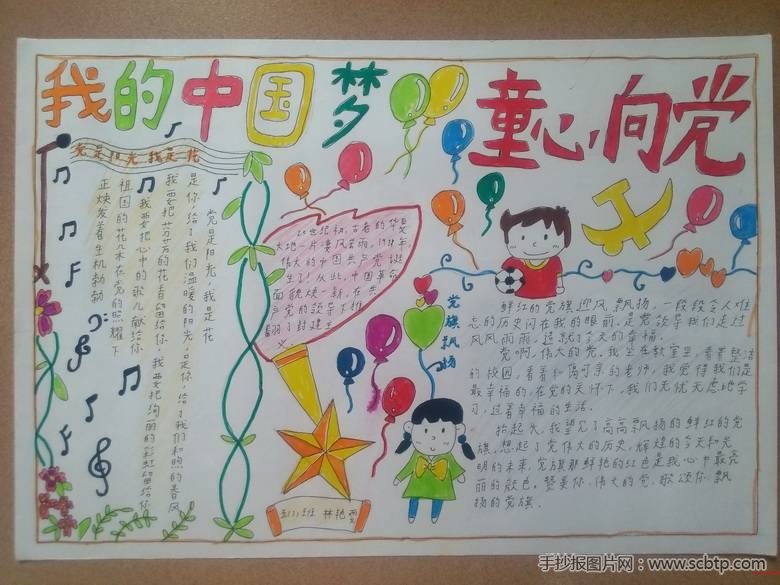 我的中国梦
童心向党
党是阳光 我是花
党是阳光,我是花
是你,给了我们温暖的阳光,是你,给了我们和煦的春风
我要把芬芳的花香留给你,我要把绚丽的彩虹留给你
我要把心中的歌儿献给你
祖国的花儿木在党的照耀下
正焕发着生机勃勃
20世纪初,古老的华夏
大地一片凄风苦雨,1921年,
伟大的中国共产党诞
生了!从此,中国革命
面貌焕一新,在共
产党的领导下推
翻了封建主
义
党旗飘扬
鲜红的党旗迎风飘扬,一段段令人难
忘的历史闪在我的眼前,是党领导我们走过
风风雨雨,造就了今天的幸福。
党啊,伟大的党,我坐在教室里,看着整洁
的校园,看着和蔼可亲的老师,我觉得我们是
最幸福的,在党的关怀下,我们无忧无虑地学
习,过着幸福的生活。
抬起头,我望见了高高飘扬的鲜红的党
旗,想起了党伟大的历史,辉煌的今天和光
明的未来,党旗那鲜艳的红色是我心中最亮
丽的颜色,赞美你,伟大的党,歌颂你,飘
扬的党旗。
林艳雯
手抄报图片网:www.scbtp.com